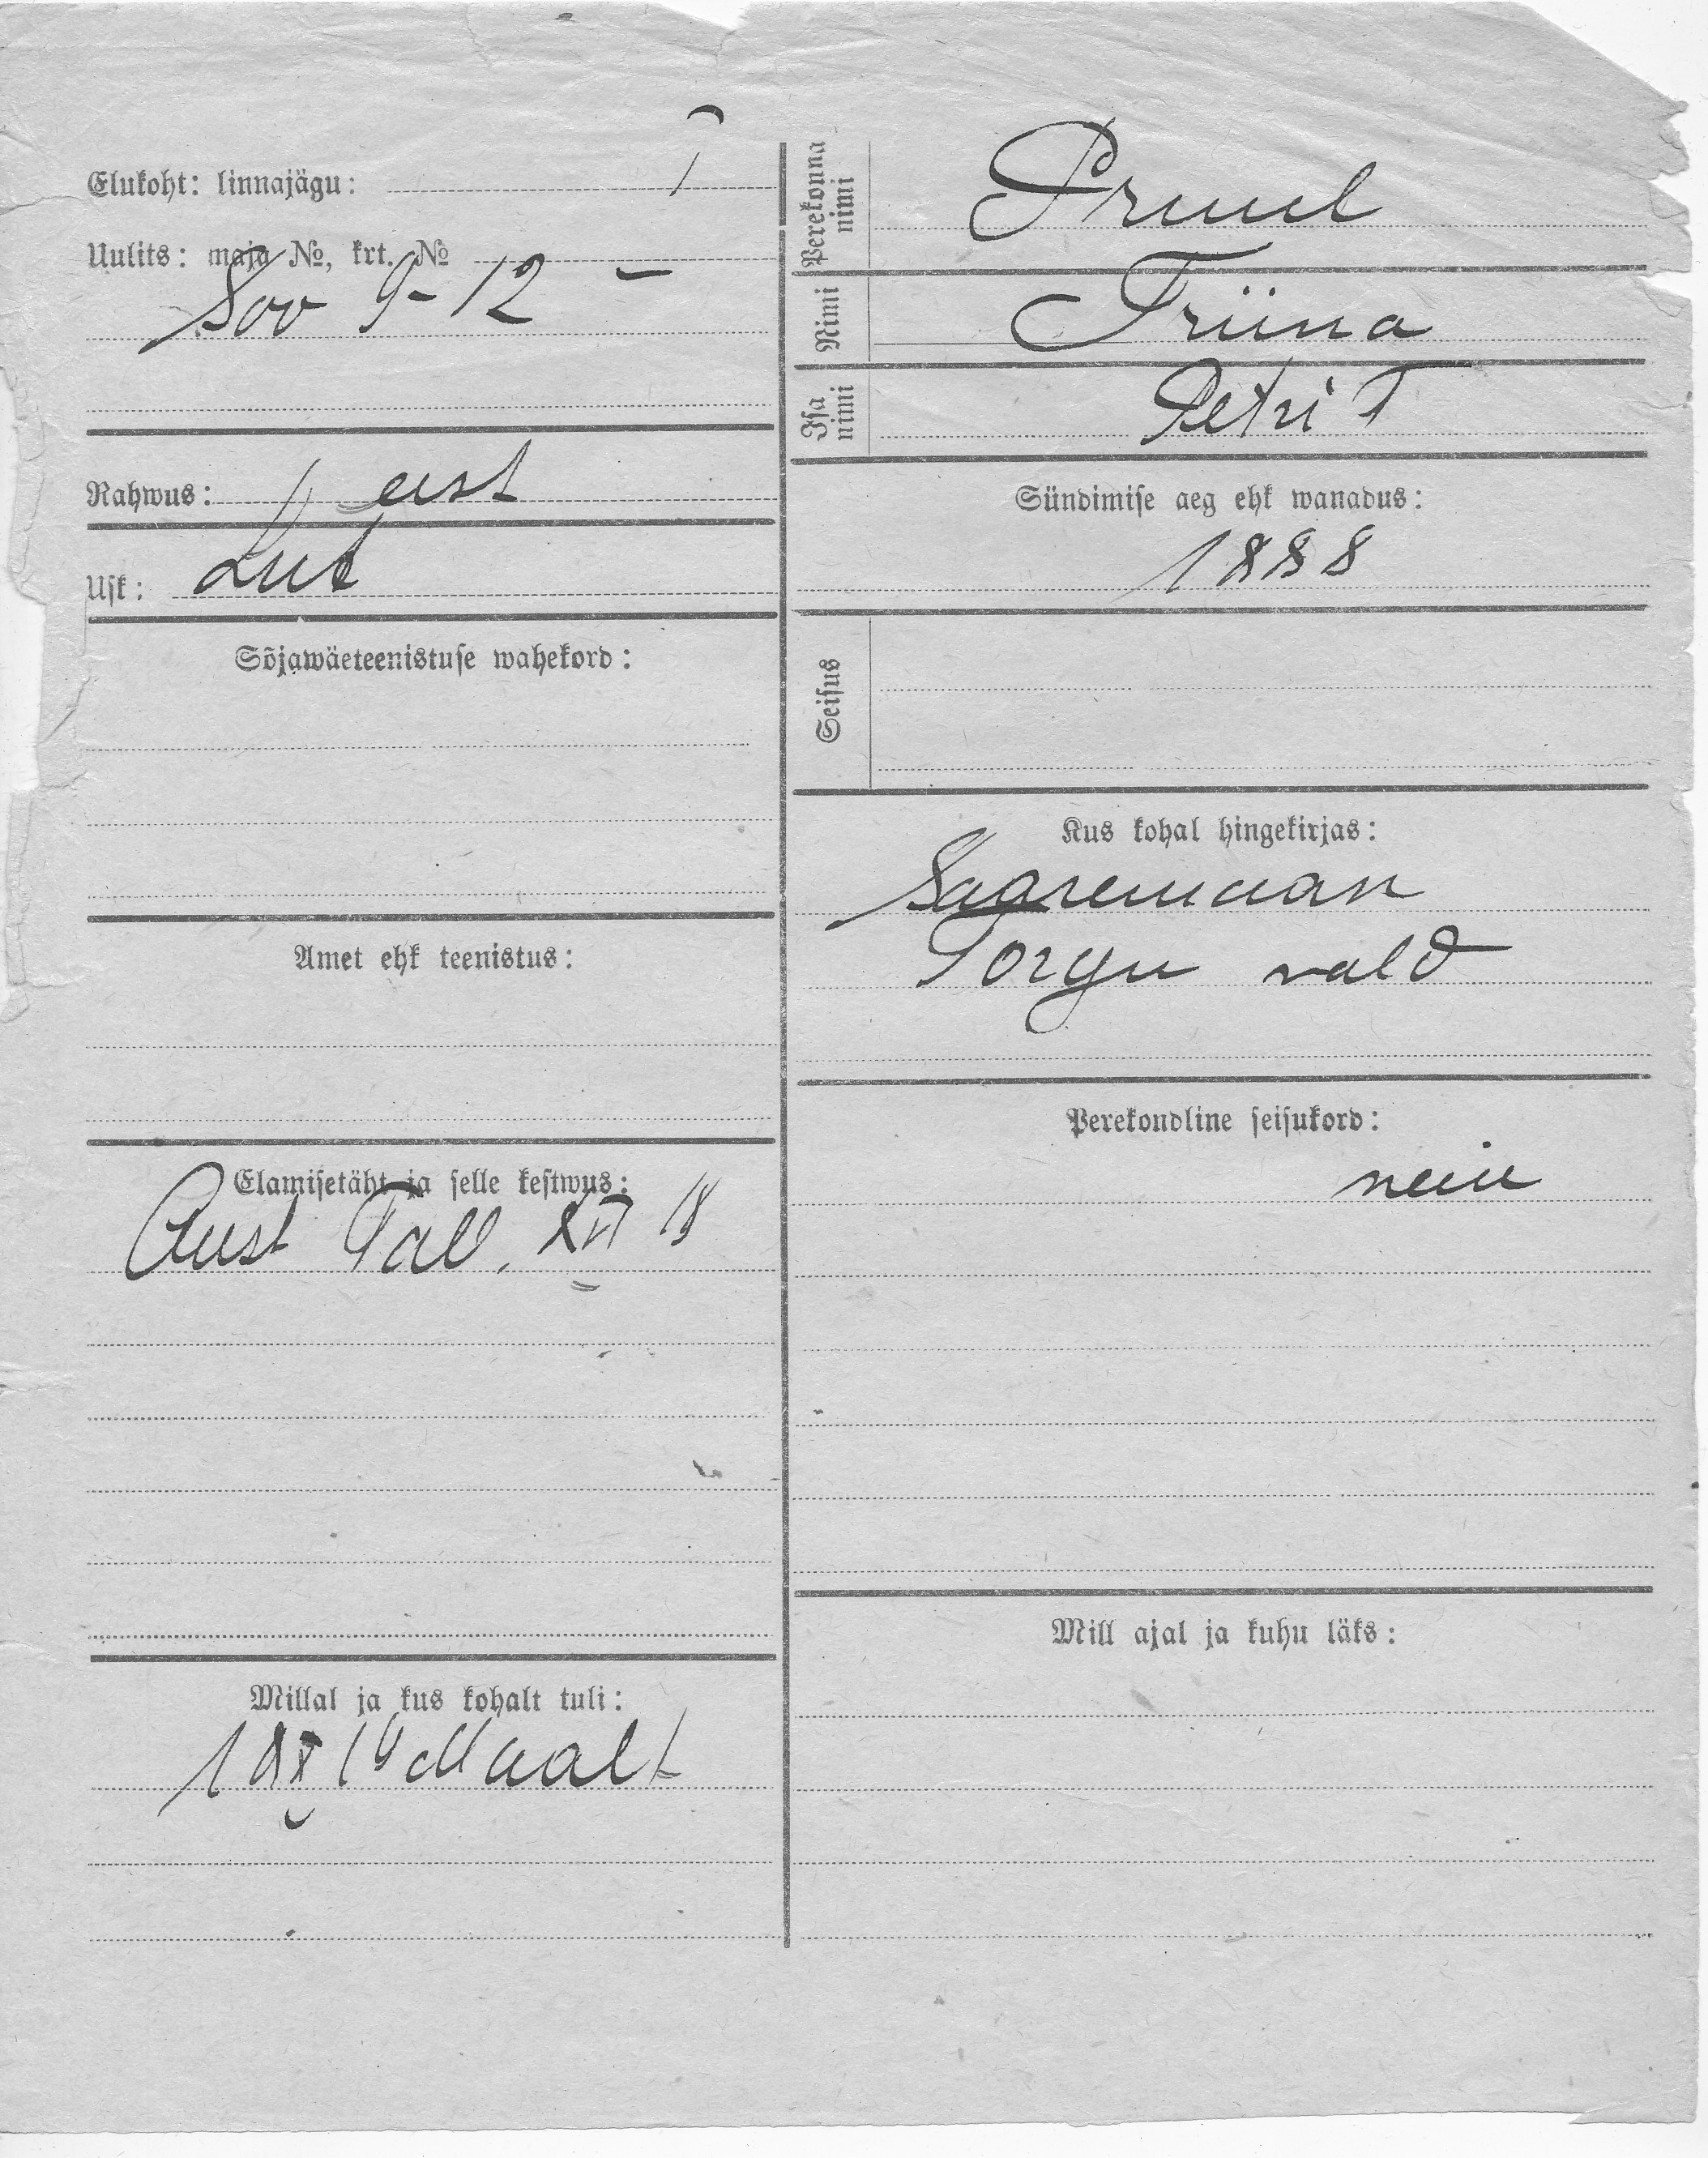 Elukoht: linnajägu: I
Uulits: maja №, krt. №
Soo 9-12 -
Rahwus: eest
Usk: Lut
Sõjawäeteenistuse wahekord:
Amet ehk teenistus:
Elamisetäht ja selle kestwus:
Tall. XII 18
Millal ja kus kohalt tuli:
Maalt
Perekonna nimi
Pruul
Nimi
Triina
Isa nimi
Petri T
Sündimise aeg ehk wanadus:
1888
Seisus
Kus kohal hingekirjas:
Saaremaan
Torgu vald
Perekondline seisukord:
neiu
Mill ajal ja kuhu läks: